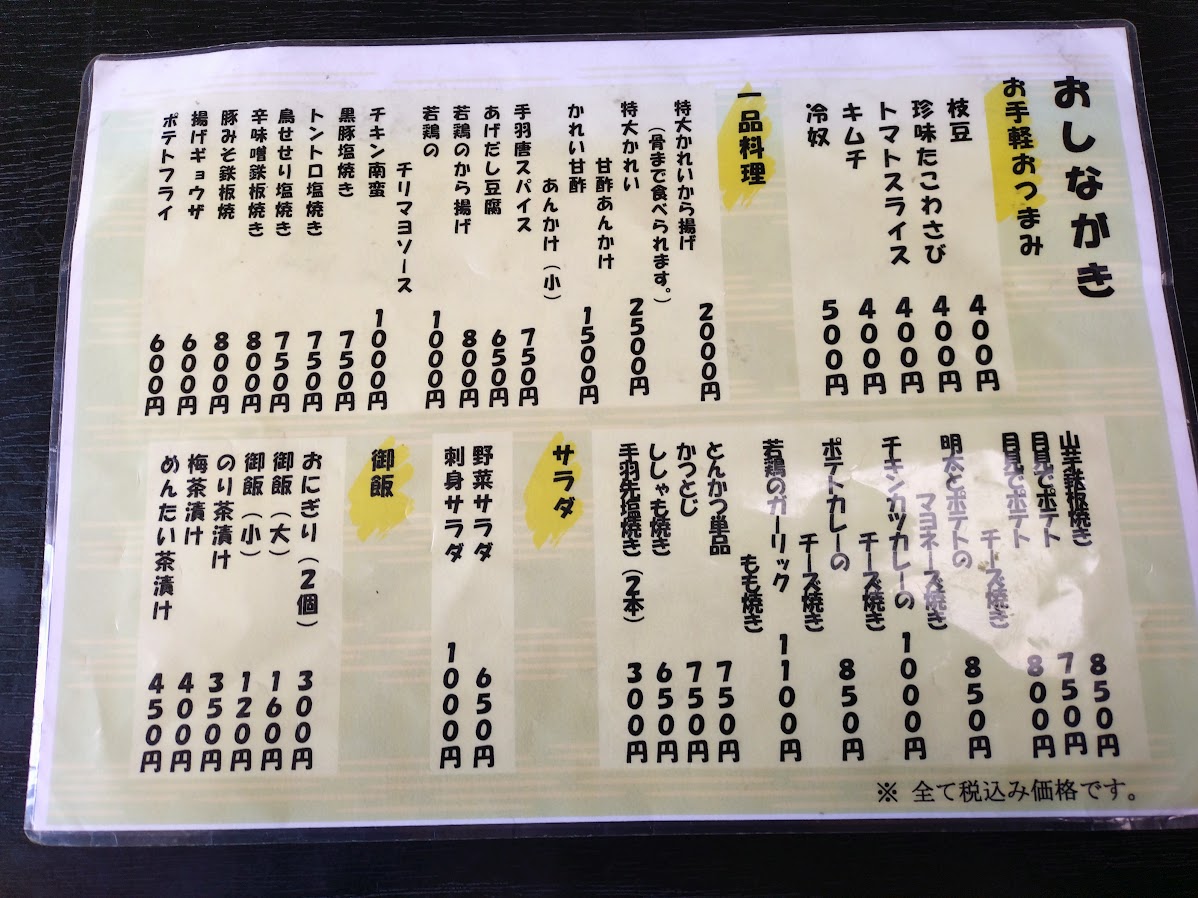 おしながき
お手軽おつまみ
枝豆 400円
珍味たこわさび 400円
トマトスライス 400円
キムチ 400円
冷奴 500円
一品料理
特大かれいから揚げ 2000円
（骨まで食べられます。）
特大かれい
甘酢あんかけ 2500円
かれい甘酢
あんかけ（小） 1500円
手羽唐スパイス 750円
あげだし豆腐 650円
若鶏のから揚げ 800円
若鶏の
チリマヨソース 1000円
チキン南蛮 1000円
黒豚塩焼き 750円
トントロ塩焼き 750円
鳥せせり塩焼き 750円
辛味噌鉄板焼き 800円
豚みそ鉄板焼 800円
揚げギョウザ 600円
ポテトフライ 600円
山芋鉄板焼き 850円
月見でポテト 750円
月見でポテト
チーズ焼き 800円
明太とポテトの
マヨネーズ焼き 850円
チキンカツカレーの
チーズ焼き 1000円
ポテトカレーの
チーズ焼き 850円
若鶏のガーリック
もも焼き 1100円
とんかつ単品 750円
かつとじ 750円
ししゃも焼き 650円
手羽先塩焼き（2本） 300円
サラダ
野菜サラダ 650円
刺身サラダ 1000円
御飯
おにぎり（2個） 300円
御飯（大） 160円
御飯（小） 120円
のり茶漬け 350円
梅茶漬け 400円
めんたい茶漬け 450円
※ 全て税込み価格です。